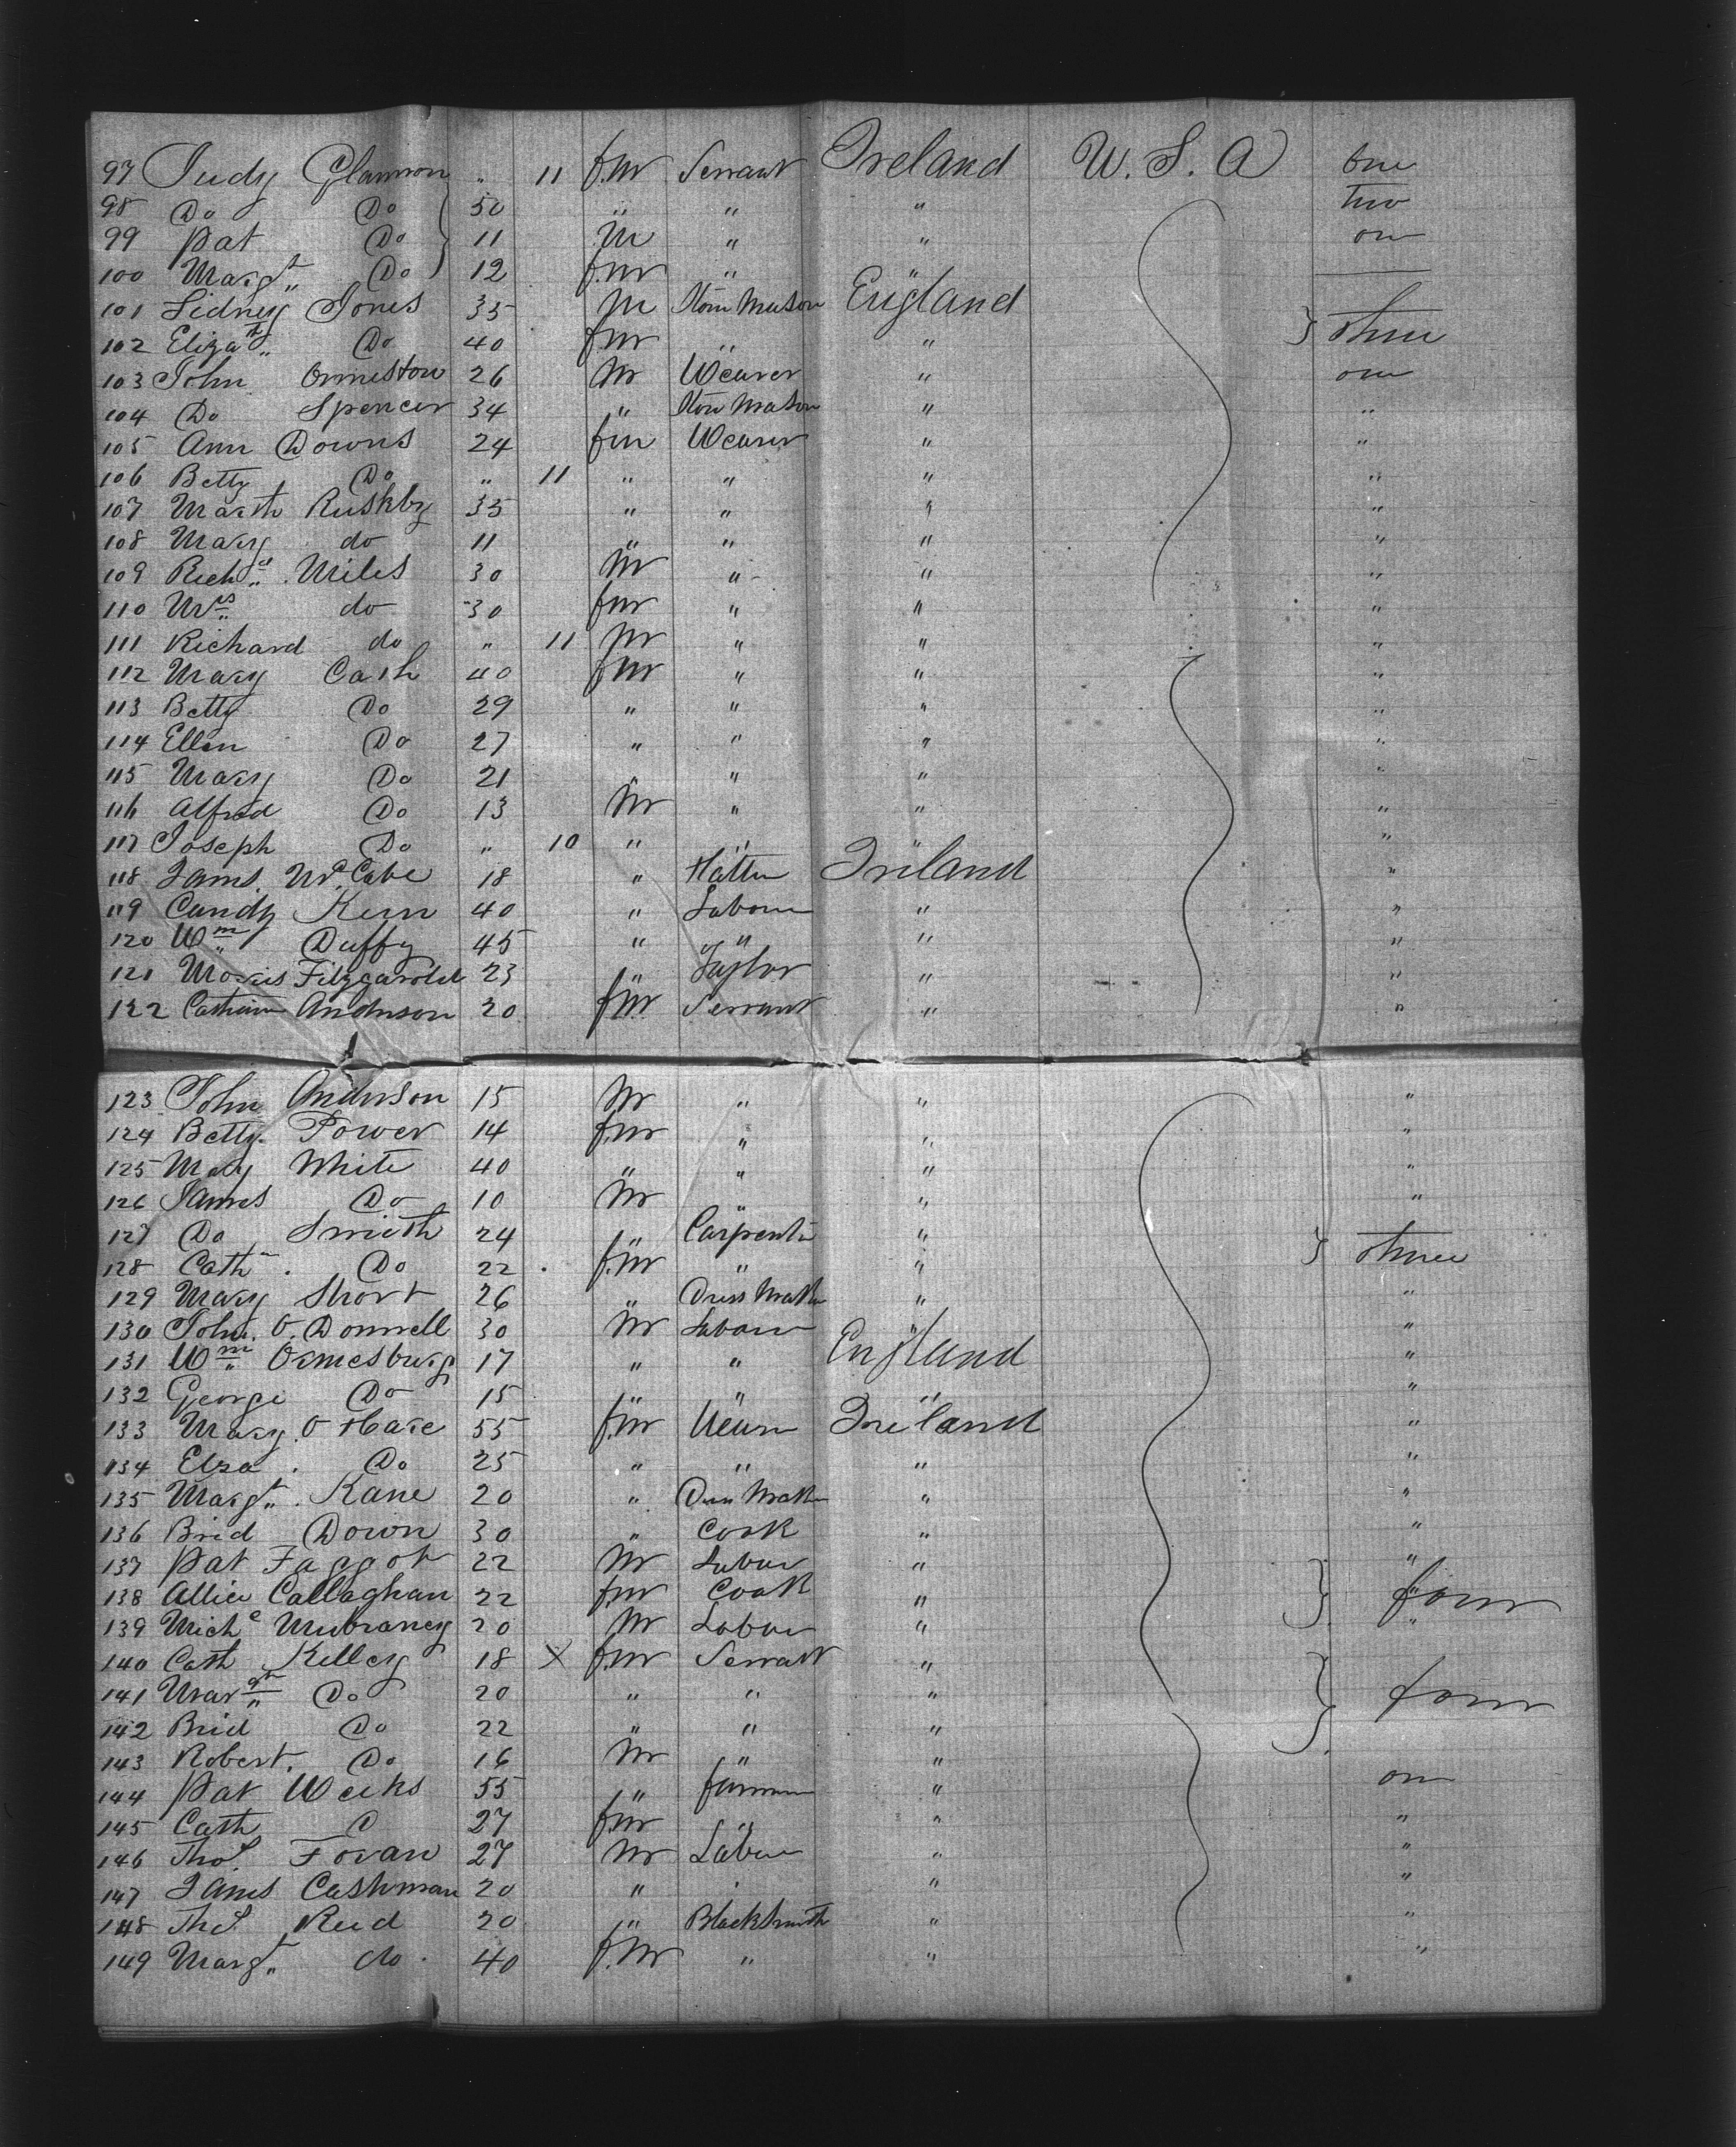 97 Judy Glannon " 11 f.m Servant Ireland U. S. A one
98 Do Do 50 " " " Two
99 Pat Do 11 m " " one
100 Margt Do 12 f.m " "
101 Sidney Jones 35 m Stone Mason England } three
102 Elizath Do 40 fm " "
103 John Ormeston 26 m Weaver " one
104 Do Spencer 34 " Stone Mason " "
105 Ann Downs 24 fm Weaver " "
106 Betty Do " 11 " " " "
107 Marth Ruskby 35 " " " "
108 Mary do 11 " " " "
109 Richd Miles 30 m " " "
110 Mrs do 30 fm " " "
111 Richard do " 11 m " " "
112 Mary Cash 40 fm " " "
113 Betty Do 29 " " " "
114 Ellen Do 27 " " " "
115 Mary Do 21 " " " "
116 Alfred Do 13 m " " "
117 Joseph Do " 10 " " " "
118 James McCabe 18 " Hatter Ireland "
119 Candy Kern 40 " Labour " "
120 Wm Duffy 45 " " " "
121 Morris Fitzgarold 23 " Taylor " "
122 Catharine Anderson 20 f.m Servant " "
123 John Anderson 15 m " " "
124 Betty Power 14 f.m " " "
125 Mary White 40 " " " "
126 James Do 10 m " " "
127 Do Smith 24 " Carpenter " } three
128 Cathn Do 22 f.m " "
129 Mary Short 26 " Dress Maker " "
130 John O. Donnell 30 m Labour " "
131 Wm Ormesburg 17 " " England "
132 George Do 15 " " " "
133 Mary O Hare 55 f.m Weaver Ireland "
134 Elza Do 25 " " " "
135 Margt Kane 20 " Dress Maker " "
136 Brid Down 30 " Cook " "
137 Pat Faggot 22 m Labour " "
138 Allice Callaghan 22 f.m Cook " } four
139 Miche Mubraney 20 m Labour " "
140 Cath Kelley 18 X f.m Servant "
141 Margt Do 20 " " " } four
142 Brid Do 22 " " "
143 Robert Do 16 m " "
144 Pat Weeks 55 " farmer " one
145 Cath D 27 f.m " " "
146 Thos Foran 27 m Labour " "
147 James Cashman 20 " " " "
148 Thos Reed 20 " Blacksmith " "
149 Margt do 40 f.m " " "